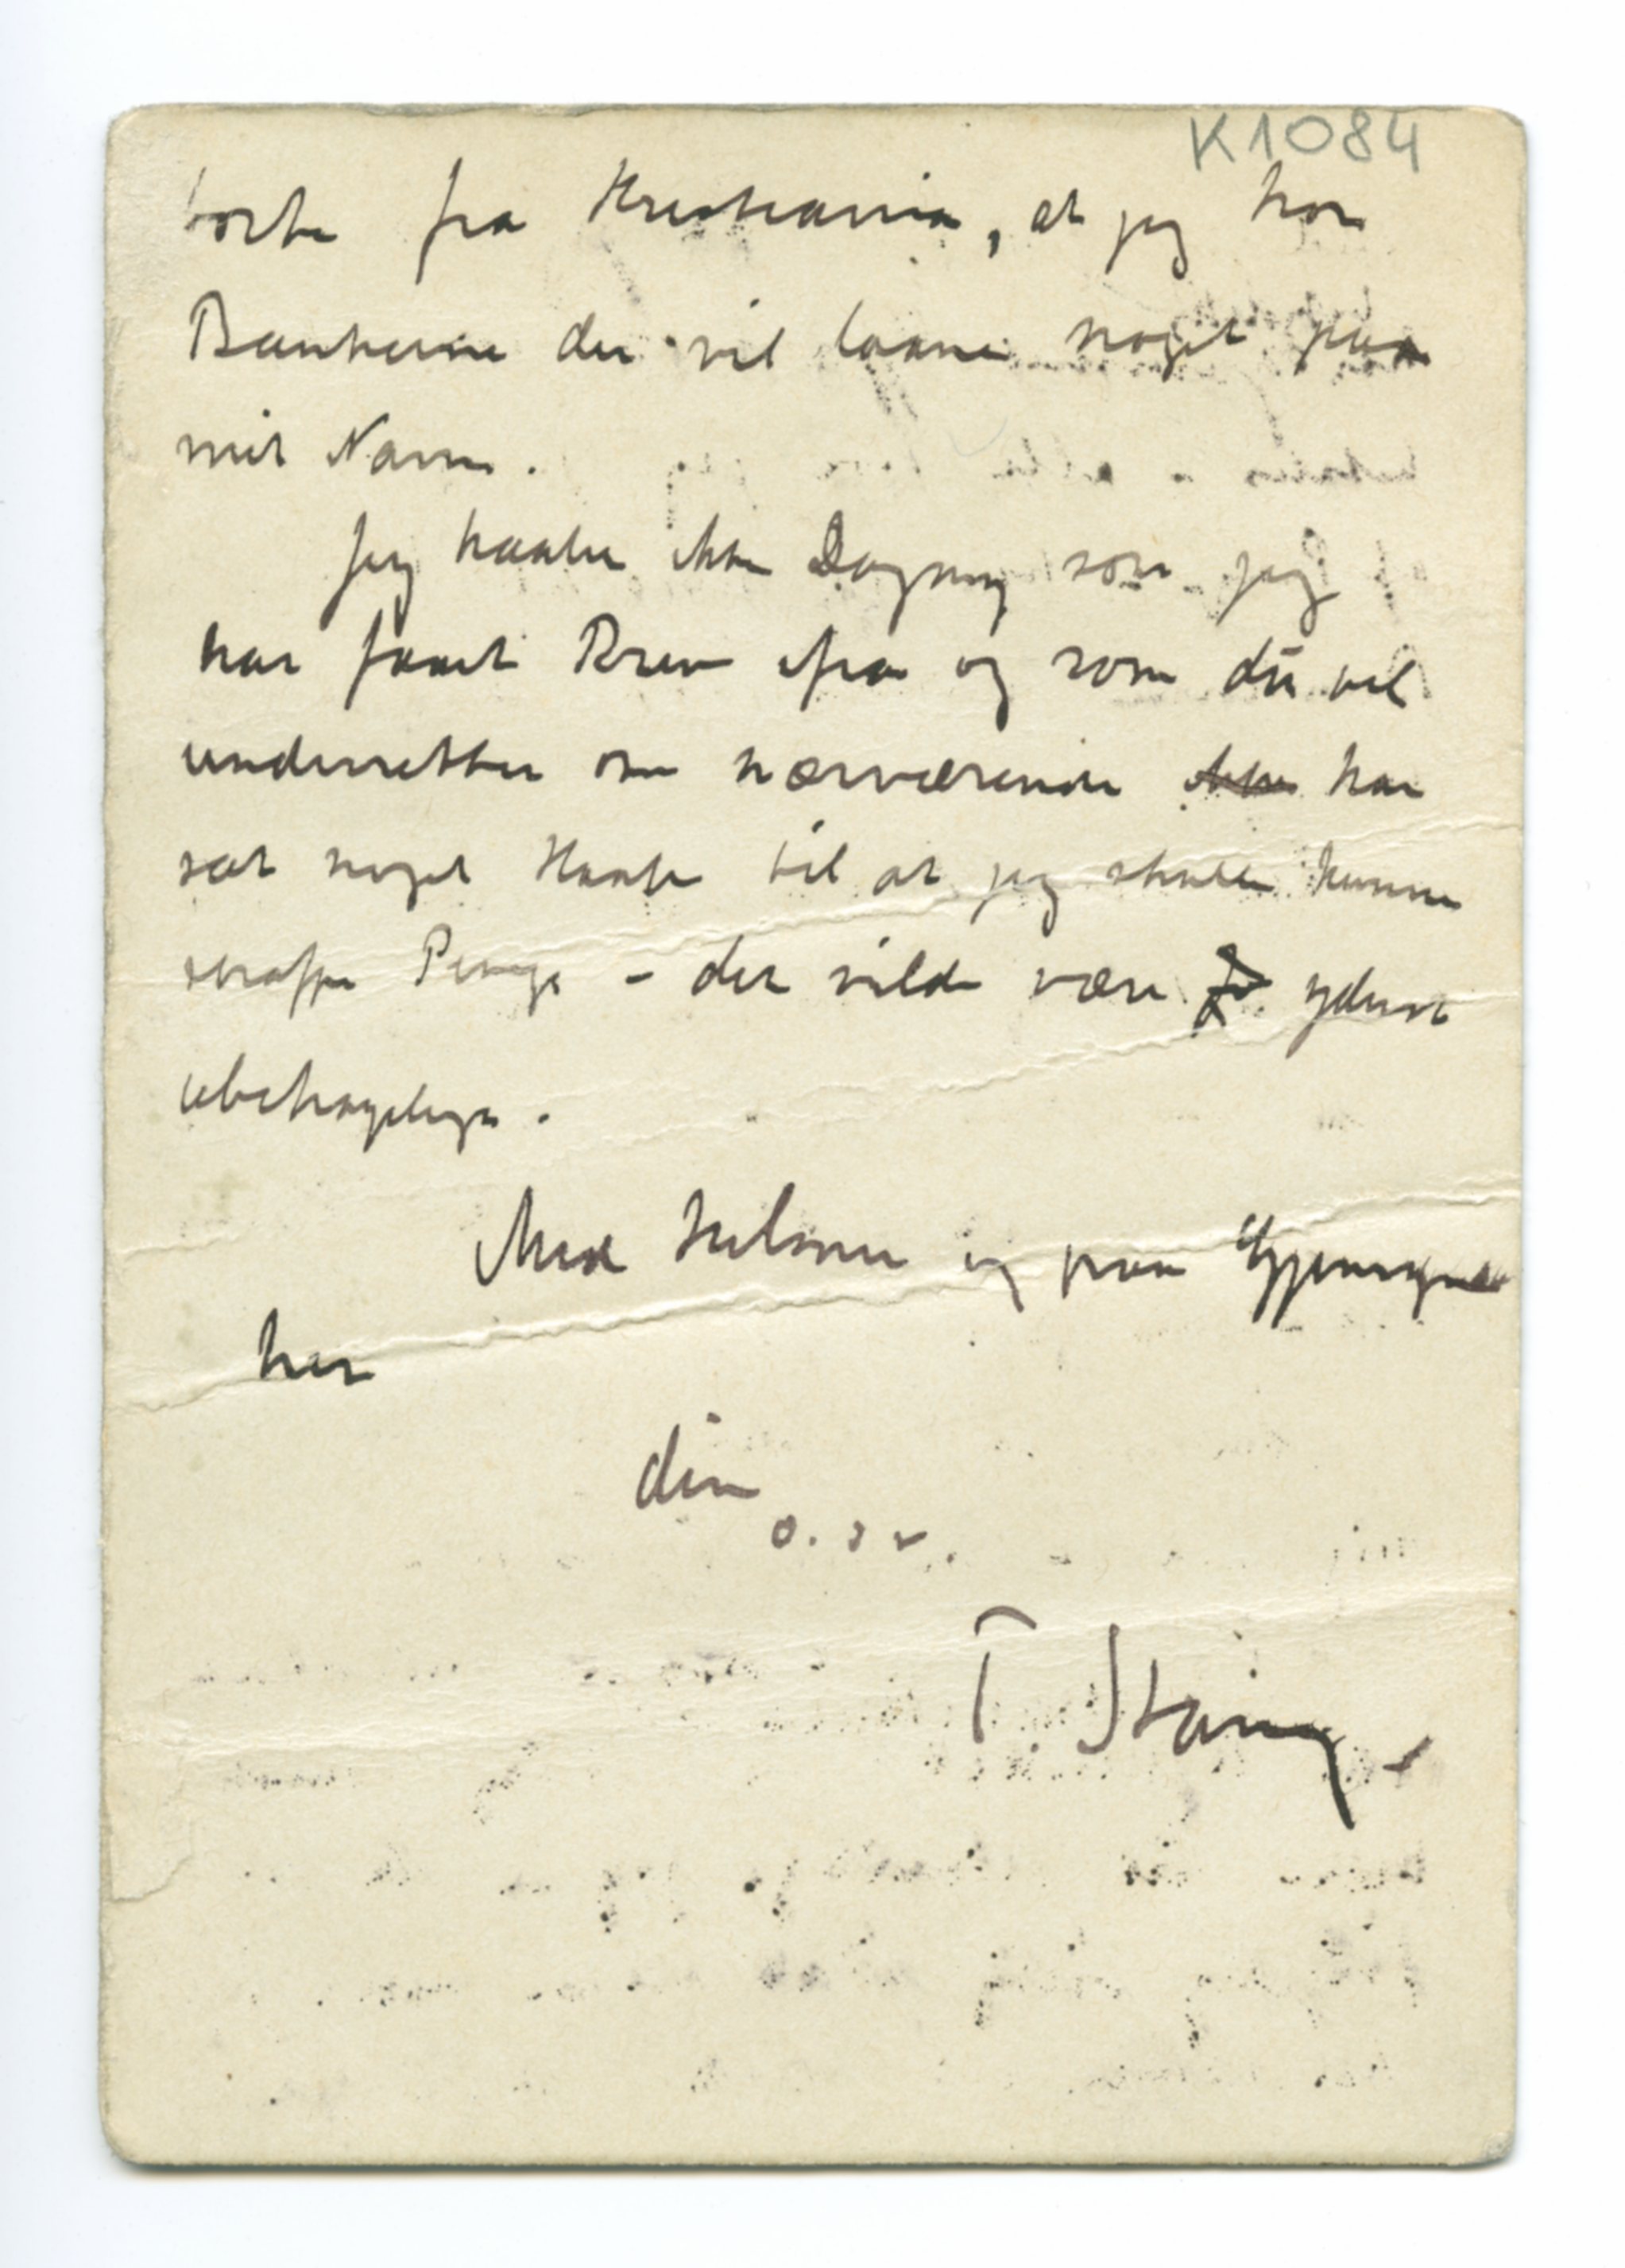 K1084
borte fra Kristiania, at jeg tror
Bankerne der vil laane noget paa
mit Navn.
Jeg haaber ikke Dagny som jeg
har faaet Brev ifra og som du vil
underretter om nærværende ikke har
sat noget Haab til at jeg skulde kunne
skaffe Penge – det vilde være yderst
ubehagelige.
Med hilsener og paa Gjensyn
her
din
o. s v.
T. Stang